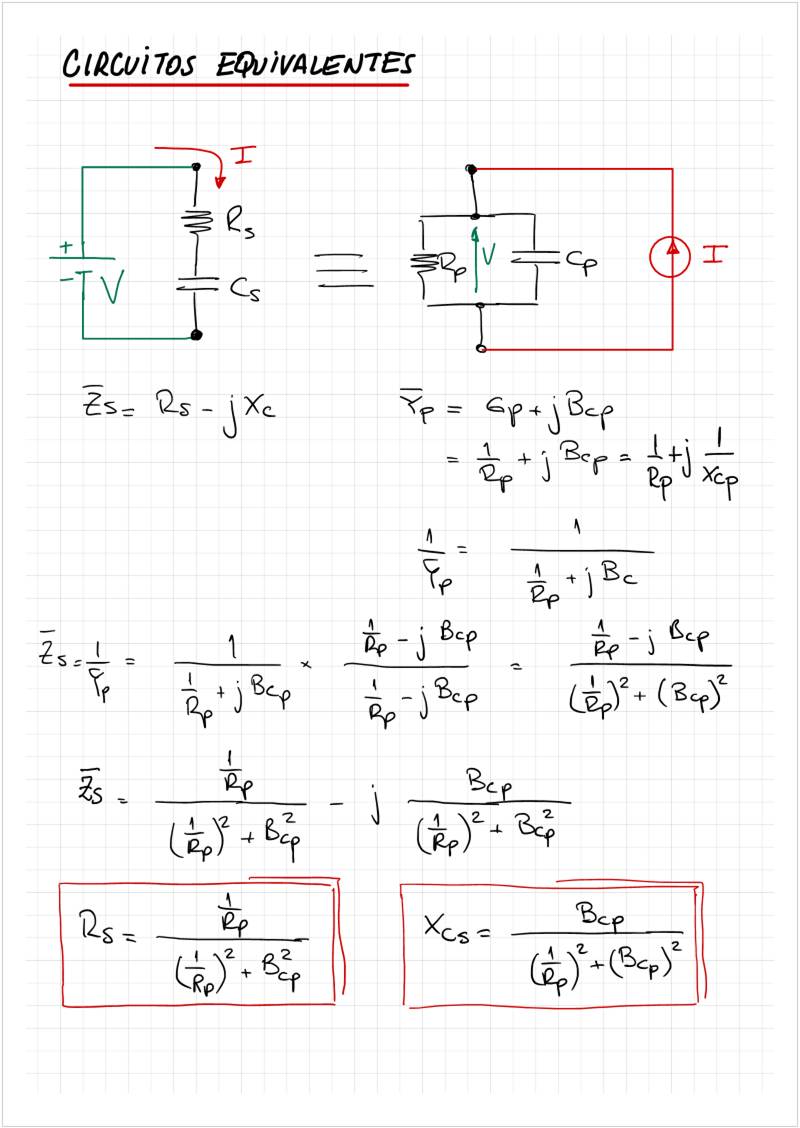 CIRCUITOS EQUIVALENTES
I
Rs
+
- V
Cs
≡
Rp V Cp
I
Z̅s = Rs - j Xc
Y̅p = Gp + j Bcp
= 1/Rp + j Bcp = 1/Rp + j 1/Xcp
1/Y̅p = 1/(1/Rp + j Bc)
Z̅s = 1/Y̅p = 1/(1/Rp + j Bcp) × (1/Rp - j Bcp)/(1/Rp - j Bcp) = (1/Rp - j Bcp)/((1/Rp)² + (Bcp)²)
Z̅s = (1/Rp)/((1/Rp)² + Bcp²) - j Bcp/((1/Rp)² + Bcp²)
Rs = (1/Rp)/((1/Rp)² + Bcp²)
Xcs = Bcp/((1/Rp)² + (Bcp)²)